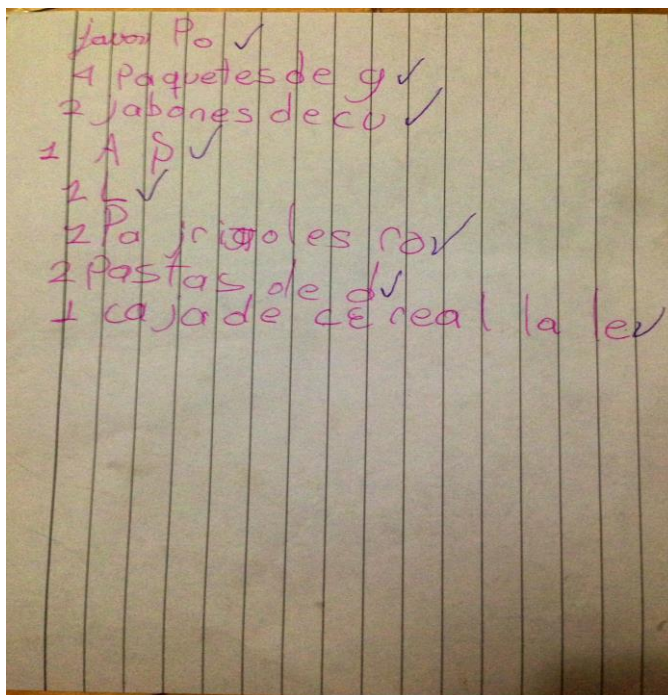 favor Po ✓
4 Paquetes de g ✓
2 jabones de cu ✓
1 A S ✓
2 L ✓
2 Pa frijoles ro ✓
2 Pastas de d ✓
1 caja de cereal la le ✓